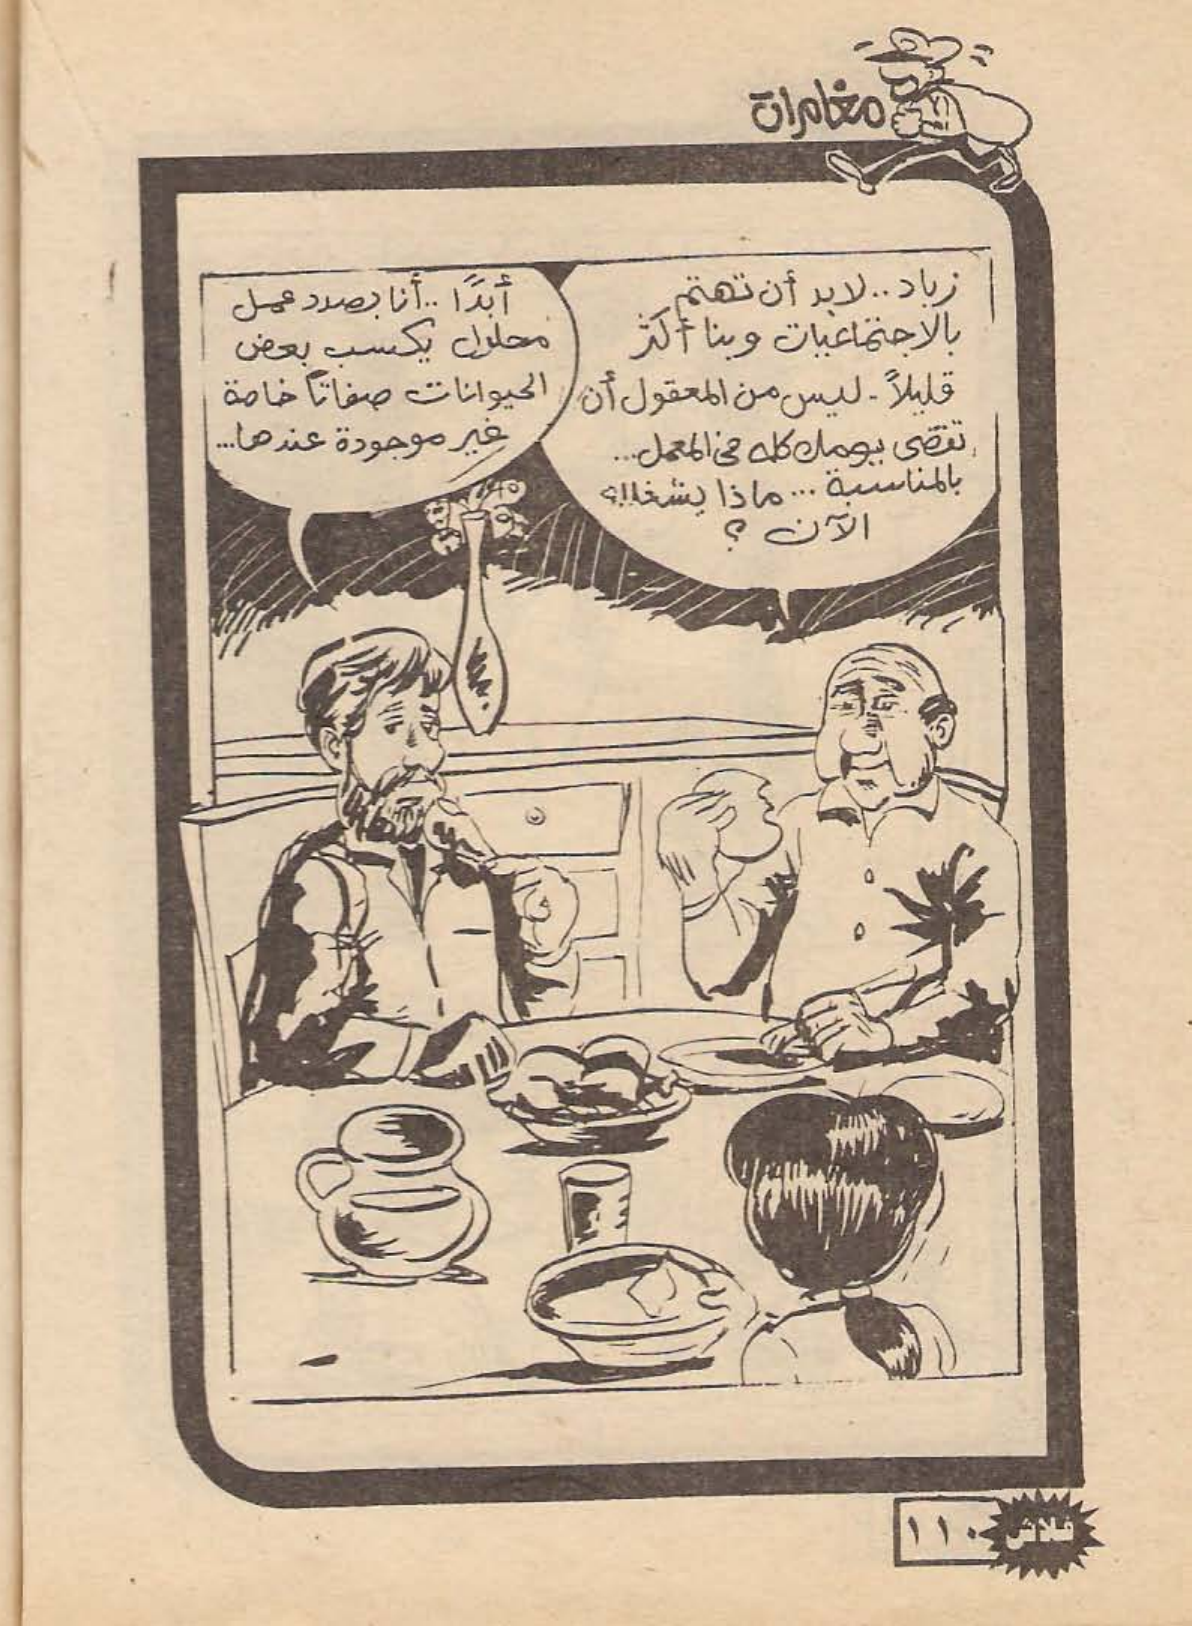 مغامرات
زياد .. لابد أن تهتم
بالاجتماعيات وبنا أكثر
قليلاً - ليس من المعقول أن
تقضى يومك كله فى المعمل ...
بالمناسبة ... ماذا يشغلك
الآن ؟
أبدًا .. أنا بصدد عمل
محلول يكسب بعض
الحيوانات صفاتاً خاصة
غير موجودة عندها ...
فلاش
١١٠